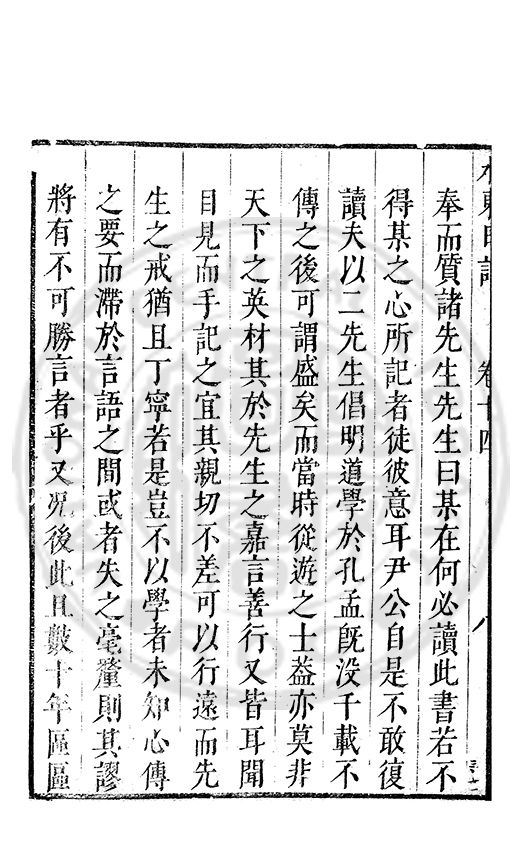 水東日記 卷十四 八
奉而質諸先生先生曰某在何必讀此書若不
得某之心所記者徒彼意耳尹公自是不敢復
讀夫以二先生倡明道學於孔孟旣没千載不
傳之後可謂盛矣而當時從遊之士葢亦莫非
天下之英材其於先生之嘉言善行又皆耳聞
目見而手記之宜其親切不差可以行遠而先
生之戒猶且丁寧若是豈不以學者未知心傳
之要而滯於言語之間或者失之毫釐則其謬
將有不可勝言者乎又况後此且數十年區區